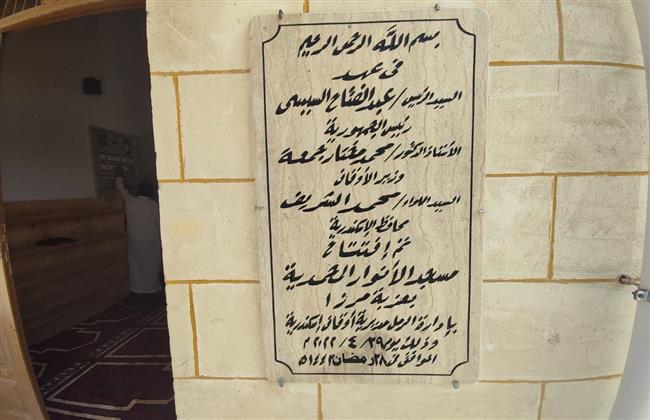 بسم الله الرحمن الرحيم
فى عهد
السيد الرئيس / عبد الفتاح السيسى
رئيس الجمهورية
الأستاذ الدكتور / محمد مختار جمعة
وزير الأوقاف
السيد اللواء / محمد الشريف
محافظ الإسكندرية
تم إفتتاح
مسجد الأنوار المحمدية
بعزبة مرزا
بإدارة الرمل مديرية أوقاف إسكندرية
وذلك يوم ٢٩ / ٤ / ٢٠٢٢
الموافق ٢٨ رمضان ١٤٤٣ ه